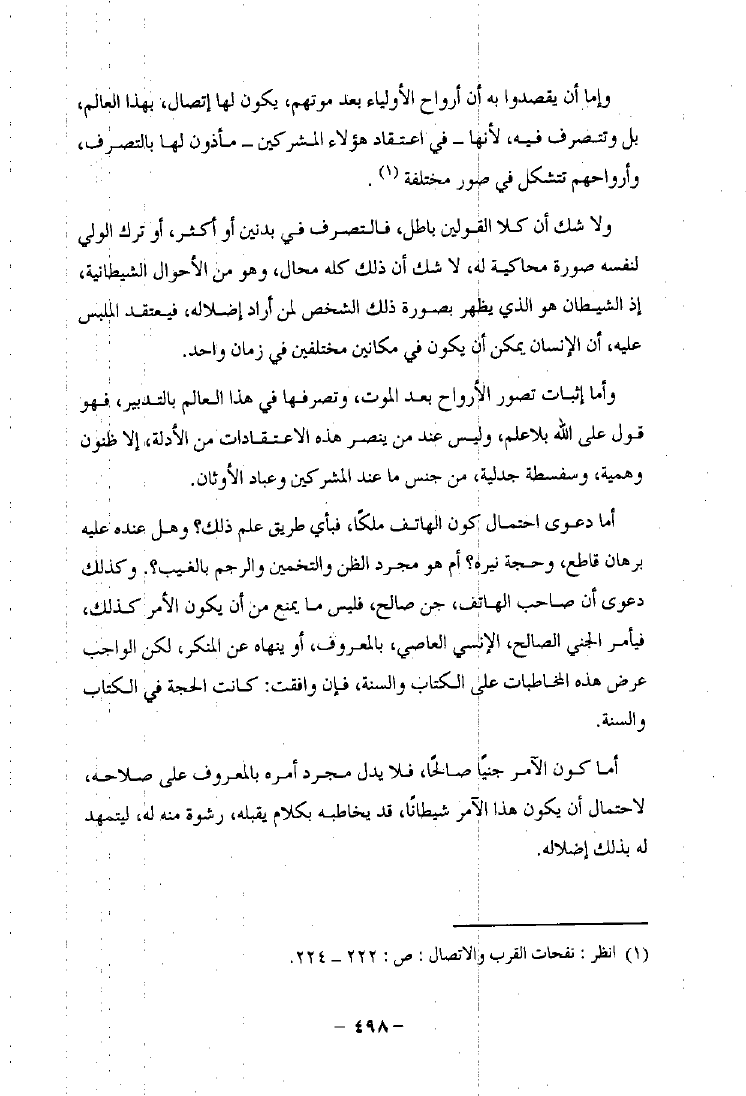 وإما أن يقصدوا به أن أرواح الأولياء بعد موتهم، يكون لها إتصال، بهذا العالم،
بل وتتصرف فيه، لأنها – في اعتقاد هؤلاء المشركين – مأذون لها بالتصرف،
وأرواحهم تتشكل في صور مختلفة (١) .
ولا شك أن كلا القولين باطل، فالتصرف في بدنين أو أكثر، أو ترك الولي
لنفسه صورة محاكية له، لا شك أن ذلك كله محال، وهو من الأحوال الشيطانية،
إذ الشيطان هو الذي يظهر بصورة ذلك الشخص لمن أراد إضلاله، فيعتقد الملبس
عليه، أن الإنسان يمكن أن يكون في مكانين مختلفين في زمان واحد.
وأما إثبات تصور الأرواح بعد الموت، وتصرفها في هذا العالم بالتدبير، فهو
قول على الله بلاعلم، وليس عند من ينصر هذه الاعتقادات من الأدلة، إلا ظنون
وهمية، وسفسطة جدلية، من جنس ما عند المشركين وعباد الأوثان.
أما دعوى احتمال كون الهاتف ملكًا، فبأي طريق علم ذلك؟ وهل عنده عليه
برهان قاطع، وحجة نيره؟ أم هو مجرد الظن والتخمين والرجم بالغيب؟. وكذلك
دعوى أن صاحب الهاتف، جن صالح، فليس ما يمنع من أن يكون الأمر كذلك،
فيأمر الجني الصالح، الإنسي العاصي، بالمعروف، أو ينهاه عن المنكر، لكن الواجب
عرض هذه المخاطبات على الكتاب والسنة، فإن وافقت: كانت الحجة في الكتاب
والسنة.
أما كون الآمر جنيًا صالحًا، فلا يدل مجرد أمره بالمعروف على صلاحه،
لاحتمال أن يكون هذا الآمر شيطانًا، قد يخاطبه بكلام يقبله، رشوة منه له، ليتمهد
له بذلك إضلاله.
(١) انظر : نفحات القرب والاتصال : ص : ٢٢٢ – ٢٢٤.
– ٤٩٨ –